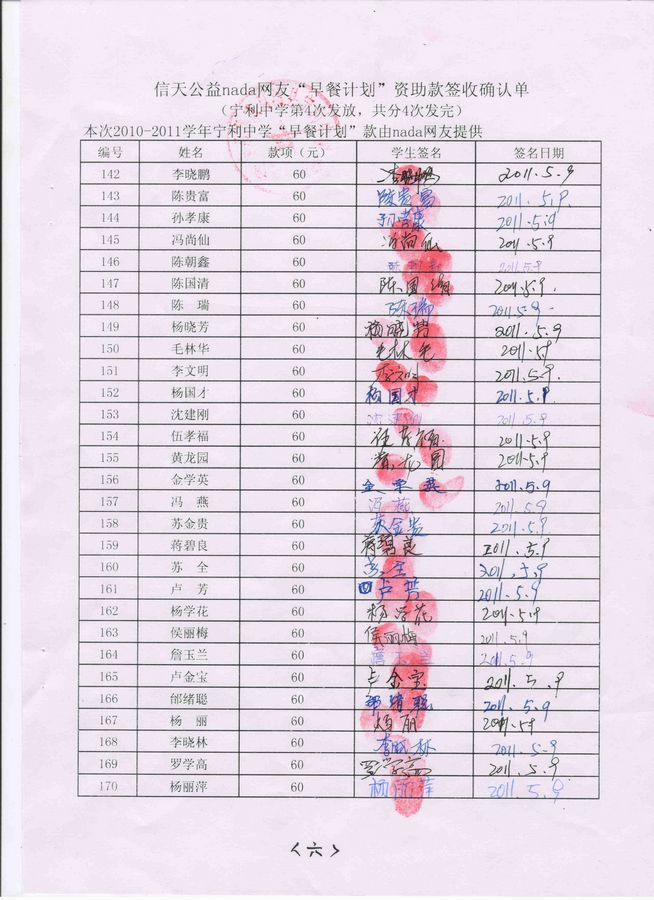 信天公益nada网友“早餐计划”资助款签收确认单
（宁利中学第4次发放，共分4次发完）
本次2010-2011学年宁利中学“早餐计划”款由nada网友提供
编号 姓名 款项（元） 学生签名 签名日期
142 李晓鹏 60 李晓鹏 2011.5.9
143 陈贵富 60 陈贵富 2011.5.9.
144 孙孝康 60 孙孝康 2011.5.9
145 冯尚仙 60 冯尚仙 2011.5.9
146 陈朝鑫 60 2011.5.9
147 陈国清 60 陈国清 2011.5.9.
148 陈 瑞 60 陈瑞 2011.5.9
149 杨晓芳 60 杨晓芳 2011.5.9
150 毛林华 60 毛林 2011.5.9
151 李文明 60 李文明 2011.5.9.
152 杨国才 60 杨国才 2011.5.9
153 沈建刚 60 2011.5.9
154 伍孝福 60 伍孝福 2011.5.9
155 黄龙园 60 黄龙园 2011.5.9
156 金学英 60 金学英 2011.5.9
157 冯 燕 60 冯燕 2011.5.9
158 苏金贵 60 苏金贵 2011.5.9
159 蒋碧良 60 蒋碧良 2011.5.9
160 苏 全 60 苏全 2011.5.9
161 卢 芳 60 卢芳 2011.5.9
162 杨学花 60 杨学花 2011.5.9
163 侯丽梅 60 侯丽梅 2011.5.9
164 詹玉兰 60 2011.5.9
165 卢金宝 60 卢金宝 2011.5.9
166 邰绪聪 60 邰绪聪 2011.5.9
167 杨 丽 60 杨丽 2011.5.9
168 李晓林 60 李晓林 2011.5.9
169 罗学高 60 罗学高 2011.5.9
170 杨丽萍 60 杨丽萍 2011.5.9
<六>